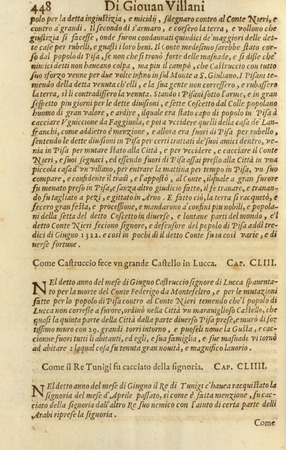 448 Di Giovan Villani
polo per la detta ingiustizia, e micidij, sdegnaro contro al Conte Nieri, e
contro a grandi. Il secondo dì s'armaro, e corsero la terra, e vollono che
giustizia si facesse, onde furon condennati quindici de maggiori delle det-
te case per rubelli, e guasti i loro beni. Il Conte medesimo sarebbe stato cor-
so dal popolo di Pisa, se non che si trovò forte delle masnade, e si disse che'
nimici detti non haueano colpa, ma più il campò, che Castruccio con tutto
suo sforzo venne per due volte infino sul Monte a S. Giuliano. I Pisani te-
mendo della detta venuta ch'elli, e la sua gente non corressero, e rubassero
la terra, si li contradissero la venuta. Stando i Pisani sotto l'arme, e in gran
sospetto più giorni per le dette diuisioni, e sette Coscetto dal Colle popolano
huomo di gran valore, e ardire, il quale era stato capo di popolo in Pisa à
cacciare Vguiccione da Faggiuola, e poi a vccidere quelli della casa de Lan-
franchi, come addietro è menzione, e allora era fuori di Pisa per rubello,
sentendo le dette diuisioni in Pisa per certi trattati de suoi amici dentro, ve-
nia in Pisa per mutare stato alla Città, e per vccidere, e cacciare il Conte
Nieri, e suoi seguaci, ed essendo fuori di Pisa assai presso alla Città in vna
piccola casa d'vn villano, per entrare la mattina per tempo in Pisa, vn suo
compare, e confidente il tradì, e l'appellò, al Conte, il quale a gran furore
fu menato preso in Pisa, e sanza altro giudicio fatto, il fè tranare, e tranan-
do fu tagliato a pezi, e gittato in Arno. E fatto ciò, la terra si racquetò, e
fecero gran festa, e processione, e mandarono a confini più nobili, e popola-
ni della setta del detto Coscetto in diuerse, e lontane parti del mondo, e'l
detto Conte Nieri feciono signore, e defensore del popolo di Pisa addì tre-
dici di Giugno 1322. e così in pochi dì il detto Conte fu in così varie, e di
uerse fortune.
Come Castruccio fece vn grande Castello in Lucca. CAP. CLIII.
NEl detto anno del mese di Giugno Castruccio signore di Lucca spauenta-
to per la morte del Conte Federigo da Montefeltro, e per le mutazioni
fatte per lo popolo di Pisa contro al Conte Nieri temendo che'l popolo di
Lucca non corresse a furore, ordinò nella Città vn marauiglioso Castello, che
quasi la quinta parte della Città dalla parte diuerso Pisa prese, e murò di for
tissimo muro con 29. grandi torri intorno, e puoseli nome la Gusta, e cac-
cionne fuori tutti li abitanti, ed egli, e sua famiglia, e sue masnade vi tornò
ad abitare; la qual cosa fu tenuta gran nouità, e magnifico lauorio.
Come il Re Tunigi fu cacciato della signoria. CAP. CLIIII.
NEl detto anno del mese di Giugno il Re di Tunigi c'hauea racquistato la
signoria del mese d'Aprile passato, sì come è fatta menzione, fu cac-
ciato della signoria dall'altro Re suo nemico con l'aiuto di certa parte delli
Arabi riprese la signoria.
Come